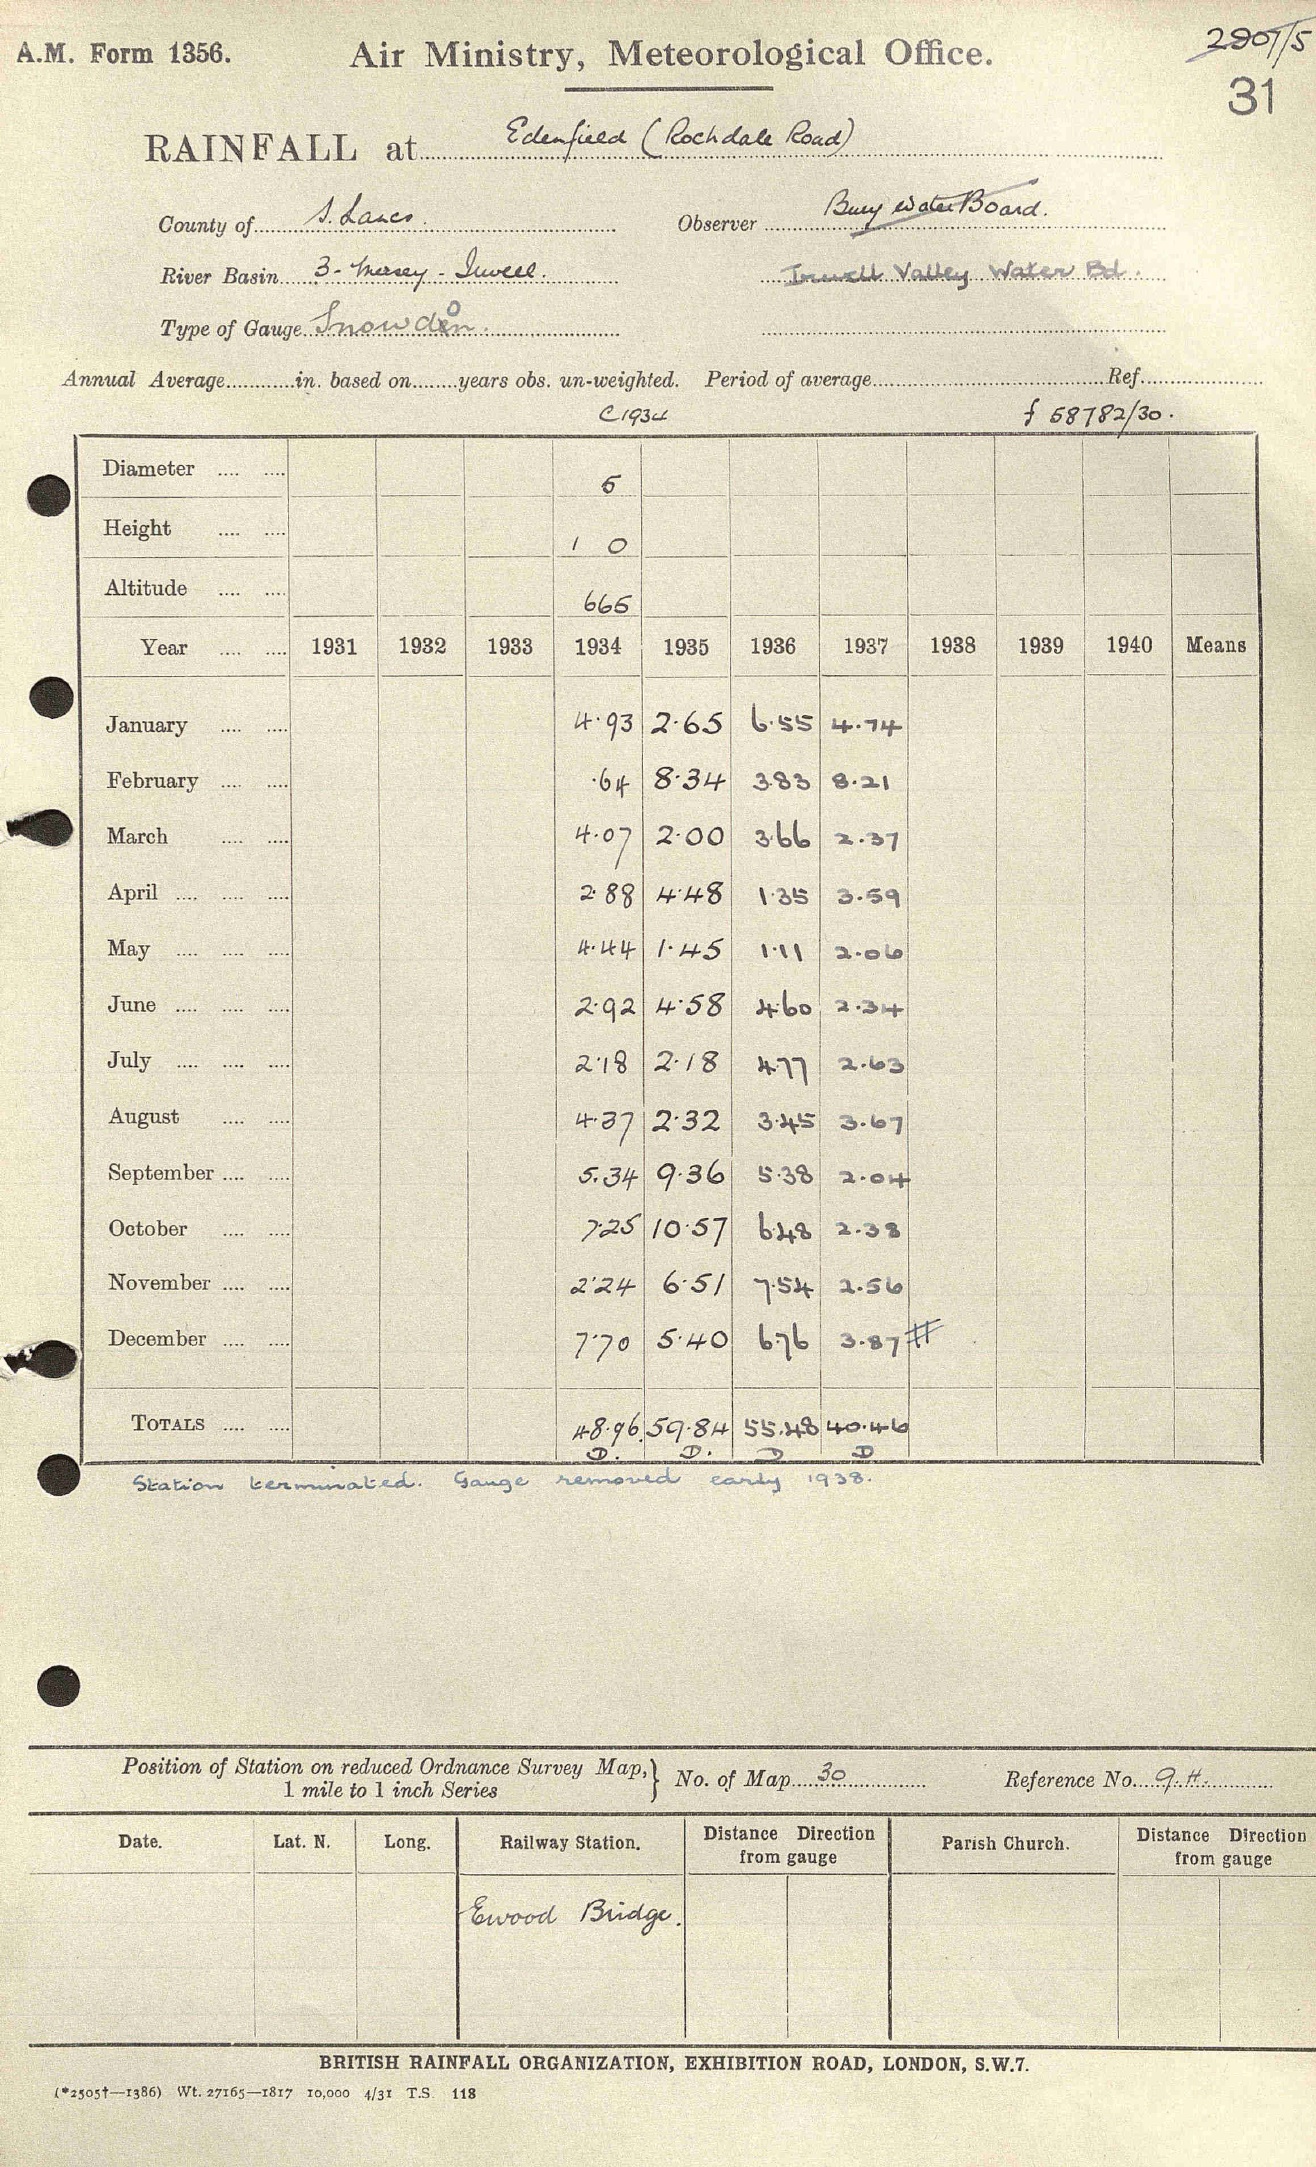 A.M. Form 1356. Air Ministry, Meteorological Office. 2807/5
31
RAINFALL at Edenfield (Rochdale Road)
County of S. Lancs. Observer Bury Water Board.
River Basin 3 - Mersey - Irwell. Irwell Valley Water Bd.
Type of Gauge Snowdon.
Annual Average in. based on years obs. un-weighted. Period of average Ref.
C1934 f 58782/30.
Diameter .... .... 5
Height .... .... 1 0
Altitude .... .... 665
Year .... .... 1931 1932 1933 1934 1935 1936 1937 1938 1939 1940 Means
January .... .... 4.93 2.65 6.55 4.74
February .... .... .64 8.34 3.83 8.21
March .... .... 4.07 2.00 3.66 2.37
April .... .... .... 2.88 4.48 1.35 3.59
May .... .... .... 4.44 1.45 1.11 2.06
June .... .... .... 2.92 4.58 4.60 2.34
July .... .... .... 2.18 2.18 4.77 2.63
August .... .... 4.37 2.32 3.45 3.67
September .... .... 5.34 9.36 5.38 2.04
October .... .... 7.25 10.57 6.48 2.38
November .... .... 2.24 6.51 7.54 2.56
December .... .... 7.70 5.40 6.76 3.87 #
TOTALS .... .... 48.96 59.84 55.48 40.46
D. D. D D
Station terminated. Gauge removed early 1938.
Position of Station on reduced Ordnance Survey Map, } No. of Map 30 Reference No. 9.H.
1 mile to 1 inch Series
Date. Lat. N. Long. Railway Station. Distance Direction from gauge Parish Church. Distance Direction from gauge
Ewood Bridge.
BRITISH RAINFALL ORGANIZATION, EXHIBITION ROAD, LONDON, S.W.7.
(*2505†—1386) Wt. 27165—1817 10,000 4/31 T.S. 118